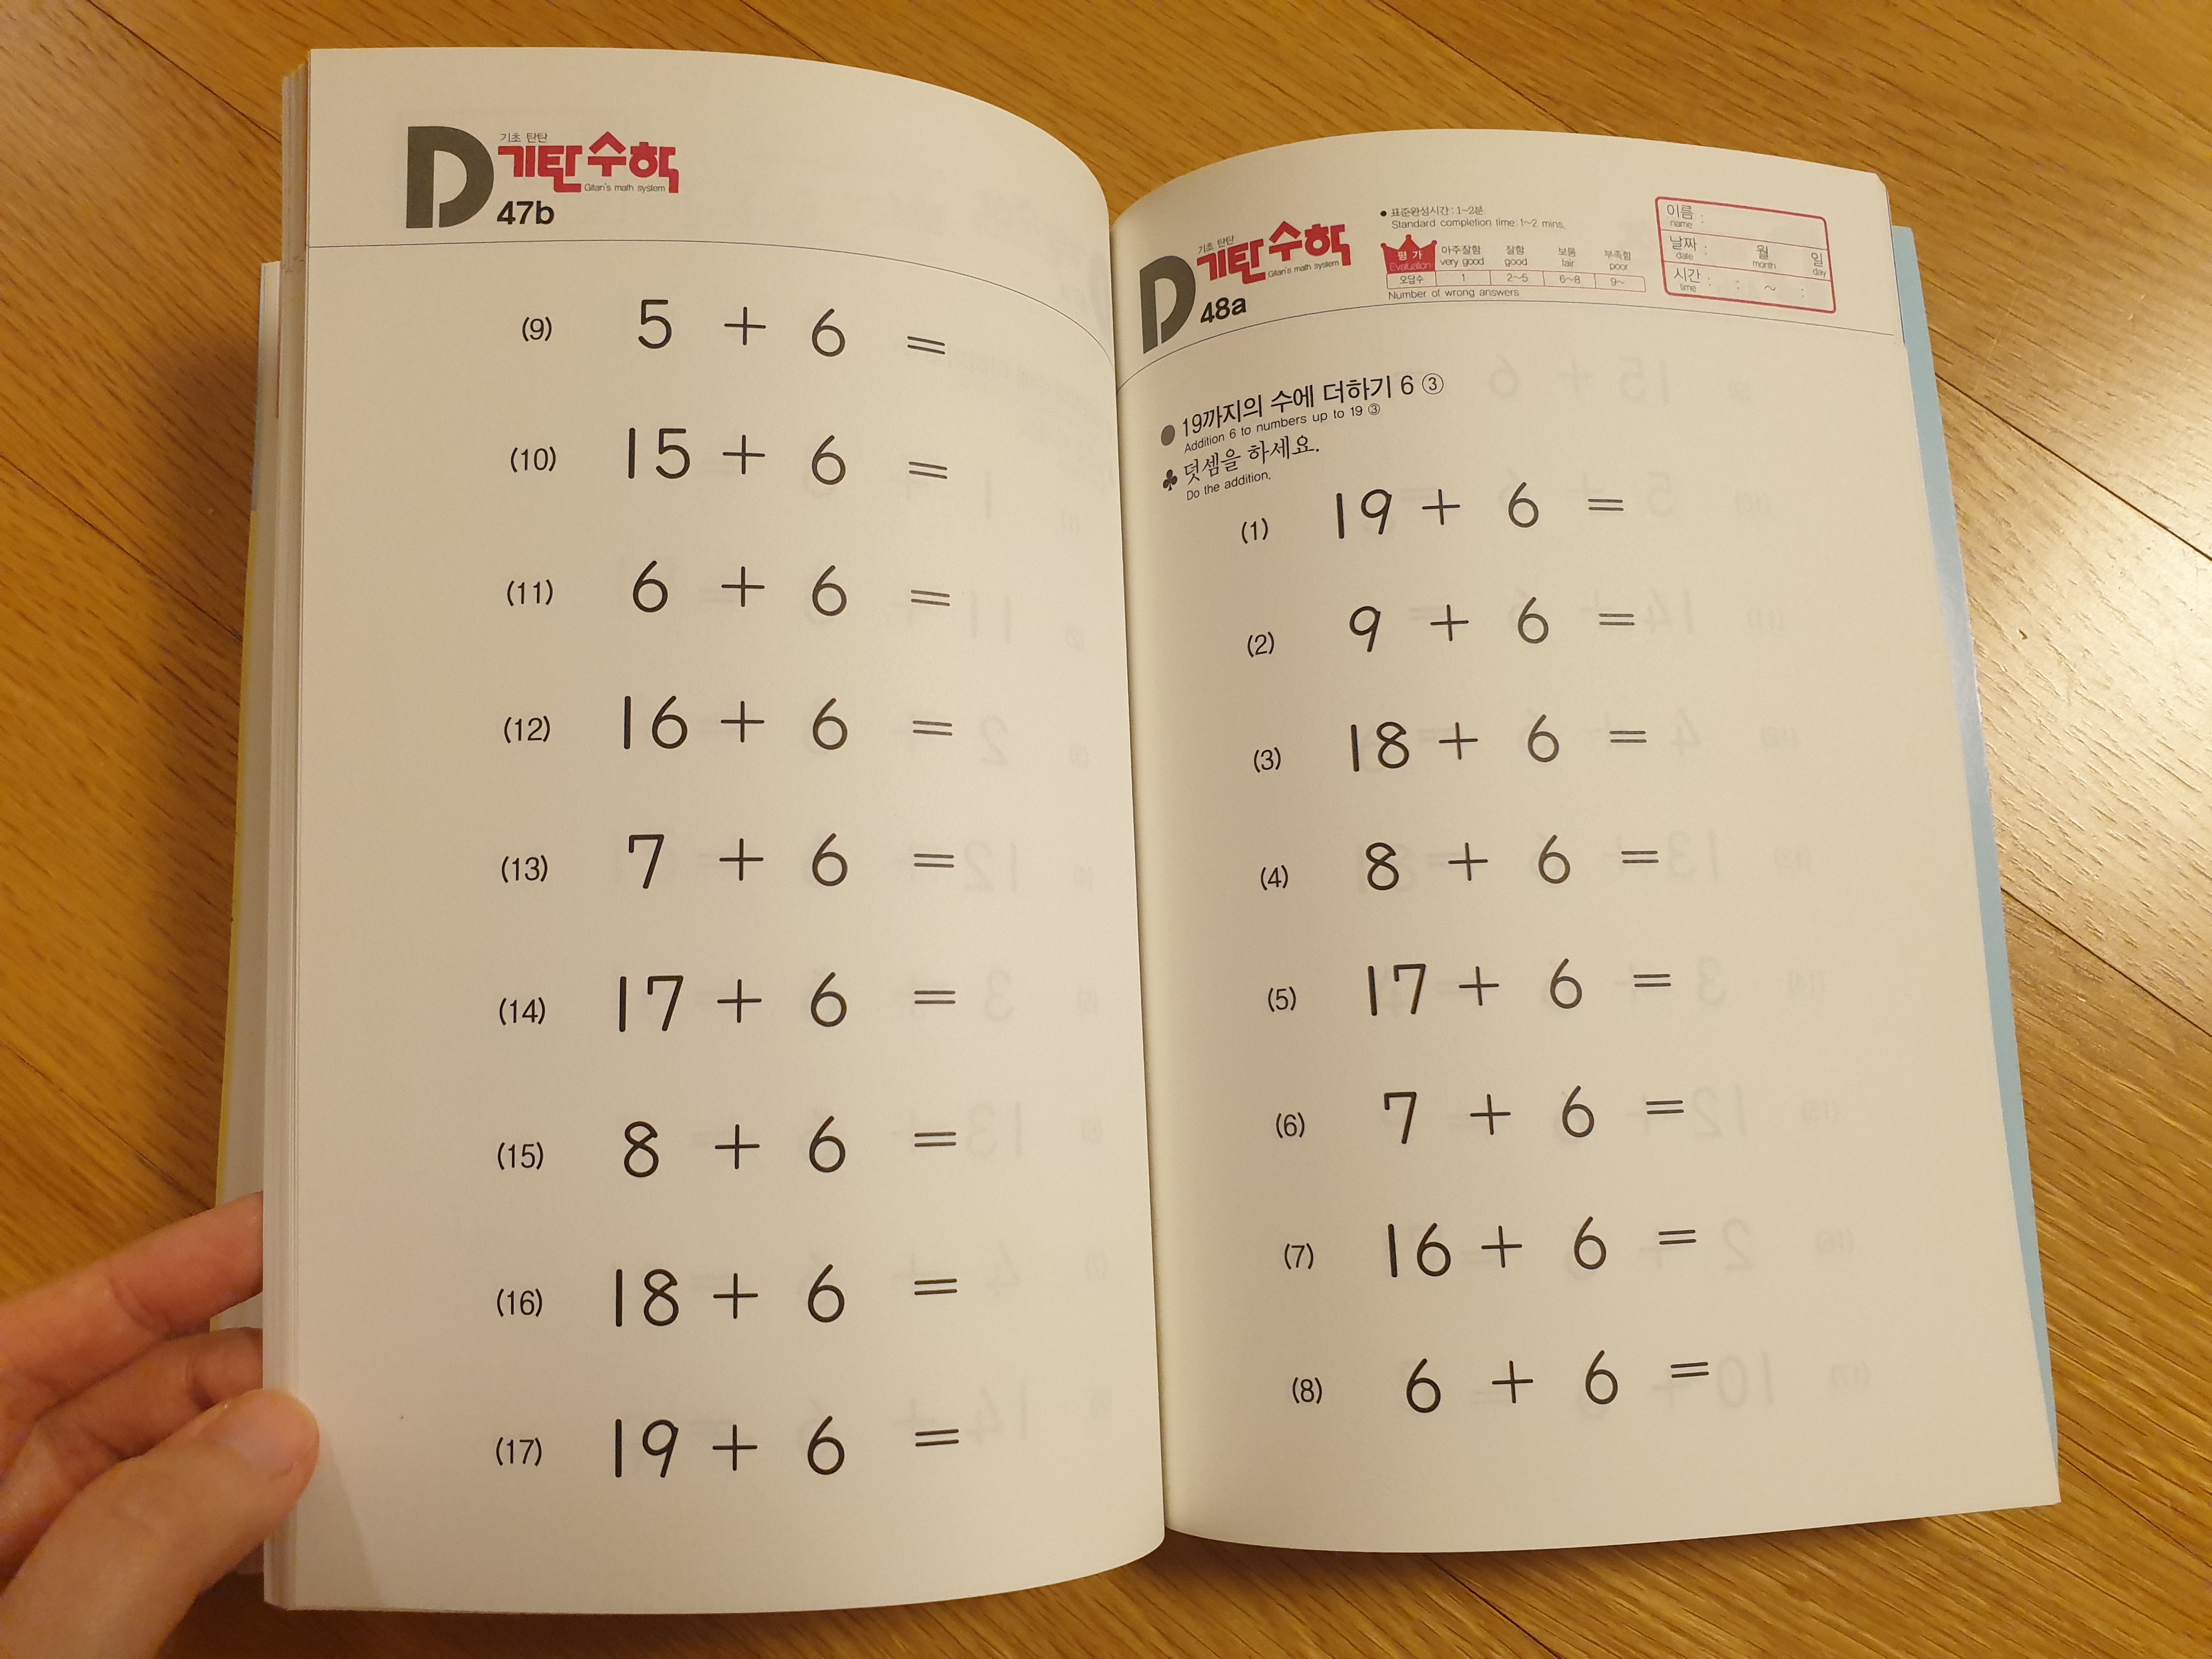 기초 탄탄
D 기탄수학
Gitan's math system
47b
(9) 5 + 6 =
(10) 15 + 6 =
(11) 6 + 6 =
(12) 16 + 6 =
(13) 7 + 6 =
(14) 17 + 6 =
(15) 8 + 6 =
(16) 18 + 6 =
(17) 19 + 6 =
기초 탄탄
D 기탄수학
Gitan's math system
48a
● 표준완성시간 : 1~2분
Standard completion time : 1~2 mins.
평가 아주잘함 잘함 보통 부족함
Evaluation very good good fair poor
오답수 1 2~5 6~8 9~
Number of wrong answers
이름 :
name
날짜 : 월 일
date month day
시간 : : ~ :
time
● 19까지의 수에 더하기 6 ③
Addition 6 to numbers up to 19 ③
♣ 덧셈을 하세요.
Do the addition.
(1) 19 + 6 =
(2) 9 + 6 =
(3) 18 + 6 =
(4) 8 + 6 =
(5) 17 + 6 =
(6) 7 + 6 =
(7) 16 + 6 =
(8) 6 + 6 =